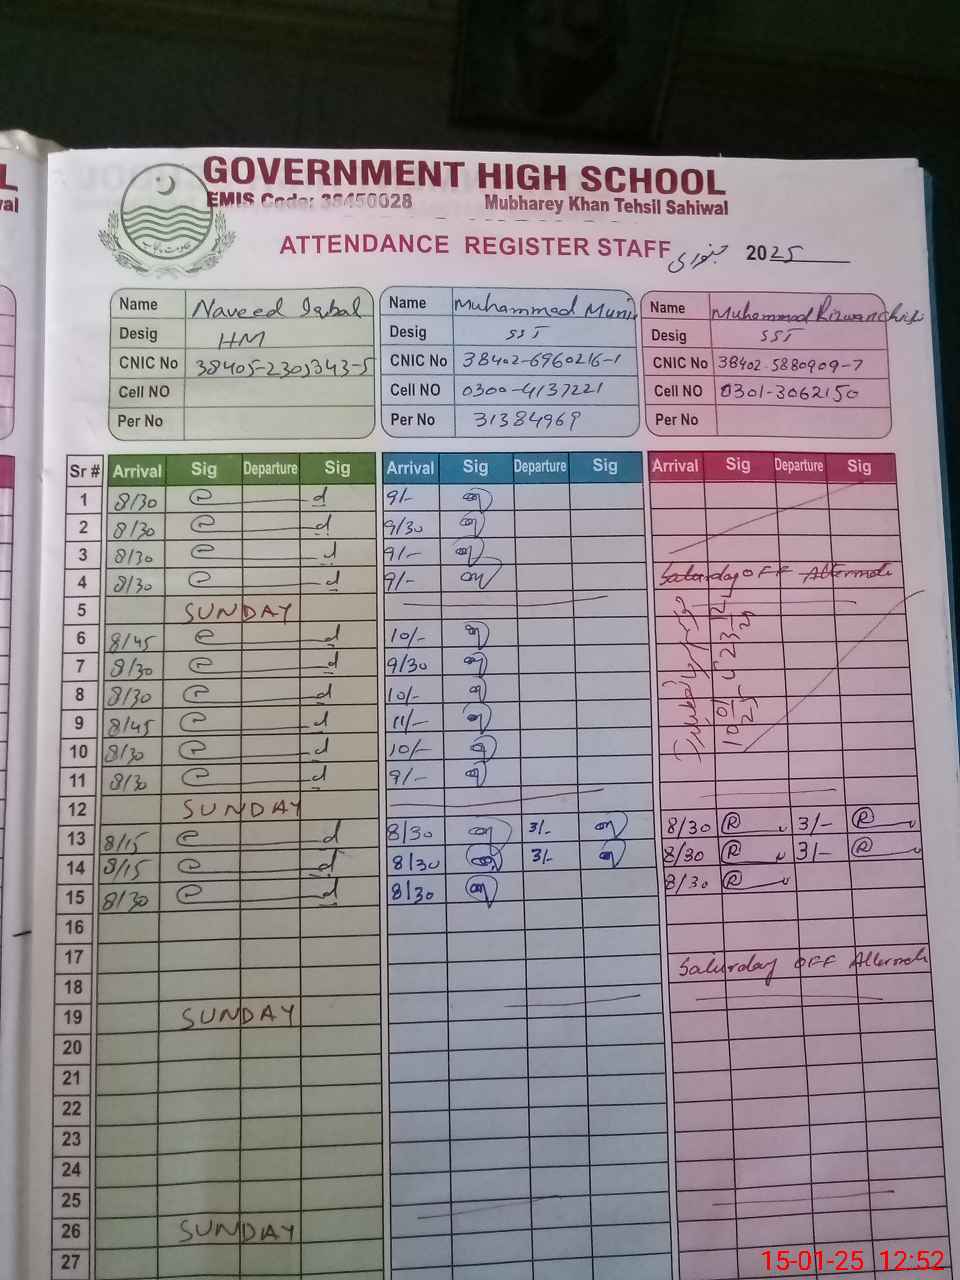 GOVERNMENT HIGH SCHOOL
EMIS Code: 38450028 Mubharey Khan Tehsil Sahiwal
ATTENDANCE REGISTER STAFF جنوری 2025
Name Naveed Iqbal Name Muhammad Munir Name Muhammad Rizwan
Desig HM Desig SST Desig SST
CNIC No 38405-2305343-5 CNIC No 38402-6960216-1 CNIC No 38402-5880909-7
Cell NO Cell NO 0300-4137221 Cell NO 0301-3062150
Per No Per No 31384969 Per No
Sr # Arrival Sig Departure Sig Arrival Sig Departure Sig Arrival Sig Departure Sig
1 8/30 9/-
2 8/30 9/30
3 8/30 9/-
4 8/30 9/- Saturday OFF
5 SUNDAY
6 8/45 10/-
7 8/30 9/30
8 8/30 10/-
9 8/45 11/-
10 8/30 10/-
11 8/30 9/-
12 SUNDAY
13 8/15 8/30 3/- 8/30 R 3/- R
14 8/15 8/30 3/- 8/30 R 3/- R
15 8/30 8/30 8/30 R
16
17 Saturday OFF
18
19 SUNDAY
20
21
22
23
24
25
26 SUNDAY
27
15-01-25 12:52